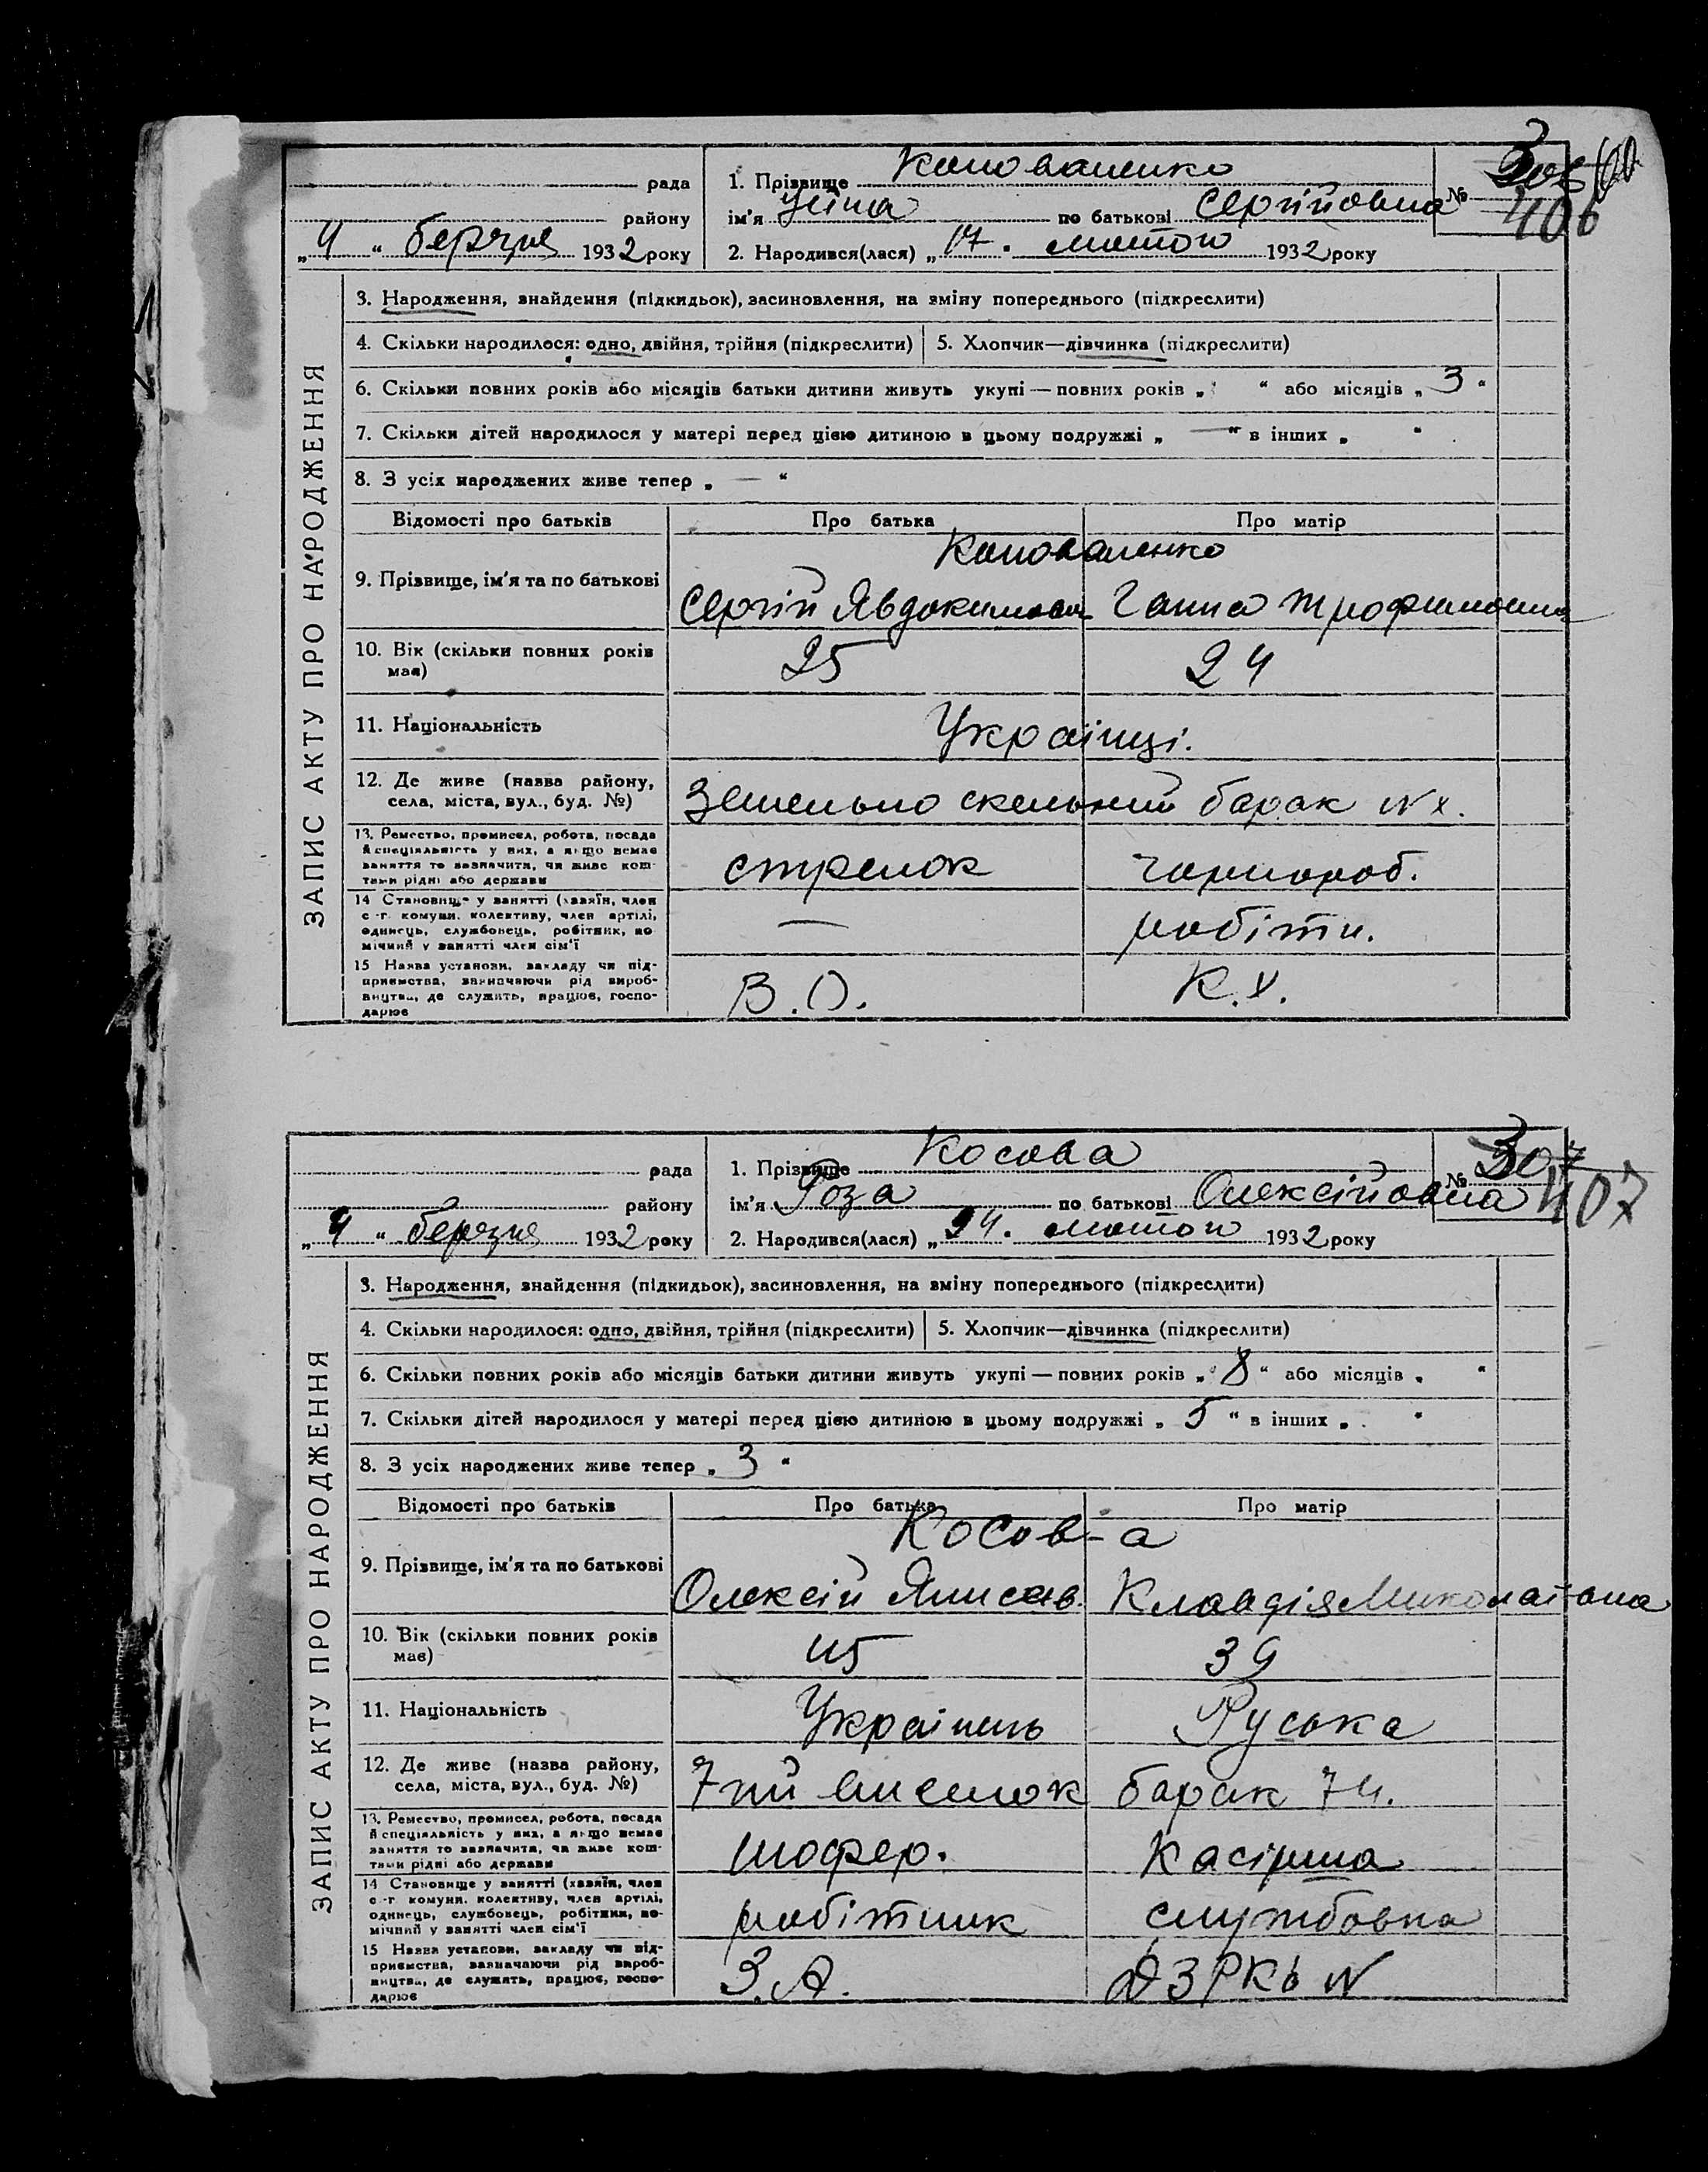 рада
району
„4“ березня 1932 року
1. Прізвище Коноваленко
ім'я по батькові Сергійовна
2. Народився(лася) „17. лютого 1932 року
№ 306
406
ЗАПИС АКТУ ПРО НАРОДЖЕННЯ
3. Народження, знайдення (підкидьок), засиновлення, на зміну попереднього (підкреслити)
4. Скільки народилося: одно, двійня, трійня (підкреслити) 5. Хлопчик—дівчинка (підкреслити)
6. Скільки повних років або місяців батьки дитини живуть укупі — повних років „ “ або місяців „ 3 “
7. Скільки дітей народилося у матері перед цією дитиною в цьому подружжі „ — “ в інших „ “
8. З усіх народжених живе тепер „ — “
Відомості про батьків Про батька Про матір
Коноваленко
9. Прізвище, ім'я та по батькові Сергій Явдокимов. Ганна Трофимовна
10. Вік (скільки повних років має) 25 24
11. Національність Українці.
12. Де живе (назва району, села, міста, вул., буд. №) барак №
13. Ремество, промисел, робота, посада й спеціяльність у них, а якщо немає заняття то зазначити, чи живе коштами рідні або держави стрелок чорнороб.
14 Становище у занятті (хазяїн, член с.-г. комуни, колективу, член артілі, одинець, службовець, робітник, помічний у занятті член сім'ї — робітн.
15 Назва установи, закладу чи підприємства, зазначаючи рід виробництва, де служить, працює, господарює В.О. К.Х.
рада
району
„4“ березня 1932 року
1. Прізвище Косова
ім'я Роза по батькові Олексійовна
2. Народився(лася) „24. лютого 1932 року
№ 307
407
ЗАПИС АКТУ ПРО НАРОДЖЕННЯ
3. Народження, знайдення (підкидьок), засиновлення, на зміну попереднього (підкреслити)
4. Скільки народилося: одно, двійня, трійня (підкреслити) 5. Хлопчик—дівчинка (підкреслити)
6. Скільки повних років або місяців батьки дитини живуть укупі — повних років „ 8 “ або місяців „ “
7. Скільки дітей народилося у матері перед цією дитиною в цьому подружжі „ 5 “ в інших „ “
8. З усіх народжених живе тепер „ 3 “
Відомості про батьків Про батька Про матір
Косов-а
9. Прізвище, ім'я та по батькові Олексій Клавдія Миколаївна
10. Вік (скільки повних років має) 45 39
11. Національність Українець Руська
12. Де живе (назва району, села, міста, вул., буд. №) 7мй барак 74.
13. Ремество, промисел, робота, посада й спеціяльність у них, а якщо немає заняття то зазначити, чи живе коштами рідні або держави шофер. Касірша
14 Становище у занятті (хазяїн, член с.-г. комуни, колективу, член артілі, одинець, службовець, робітник, помічний у занятті член сім'ї робітник службовка
15 Назва установи, закладу чи підприємства, зазначаючи рід виробництва, де служить, працює, господарює З.А.